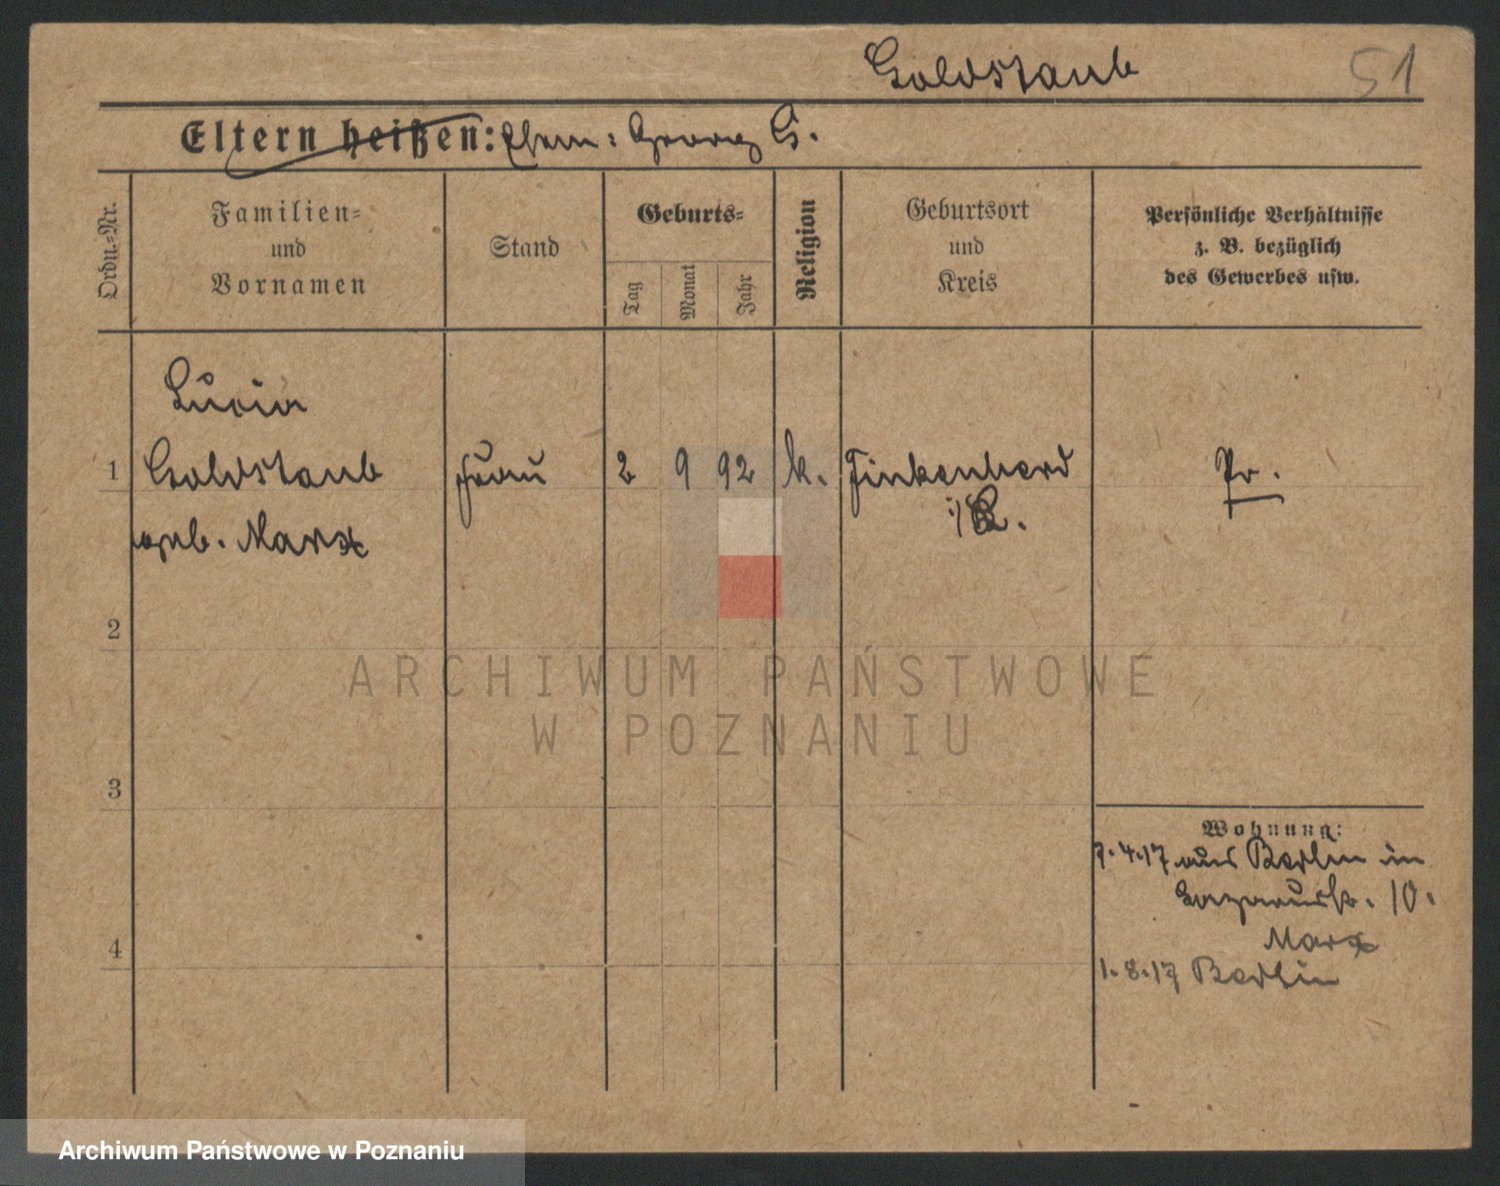 Goldstaub 51
Eltern heißen: Ehem: Georg G.
Ordn.-Nr.
Familien-
und
Vornamen
Stand
Geburts-
Tag
Monat
Jahr
Religion
Geburtsort
und
Kreis
Persönliche Verhältnisse
z. B. bezüglich
des Gewerbes usw.
Lucia
1 Goldstaub Frau 2 9 92 k. Finkenherd Pr.
geb. Marx
2
3
4
Wohnung:
7.4.17 aus Berlin in
Lazarusstr. 10.
Marx
1.8.17 Berlin
ARCHIWUM PAŃSTWOWE
W POZNANIU
Archiwum Państwowe w Poznaniu